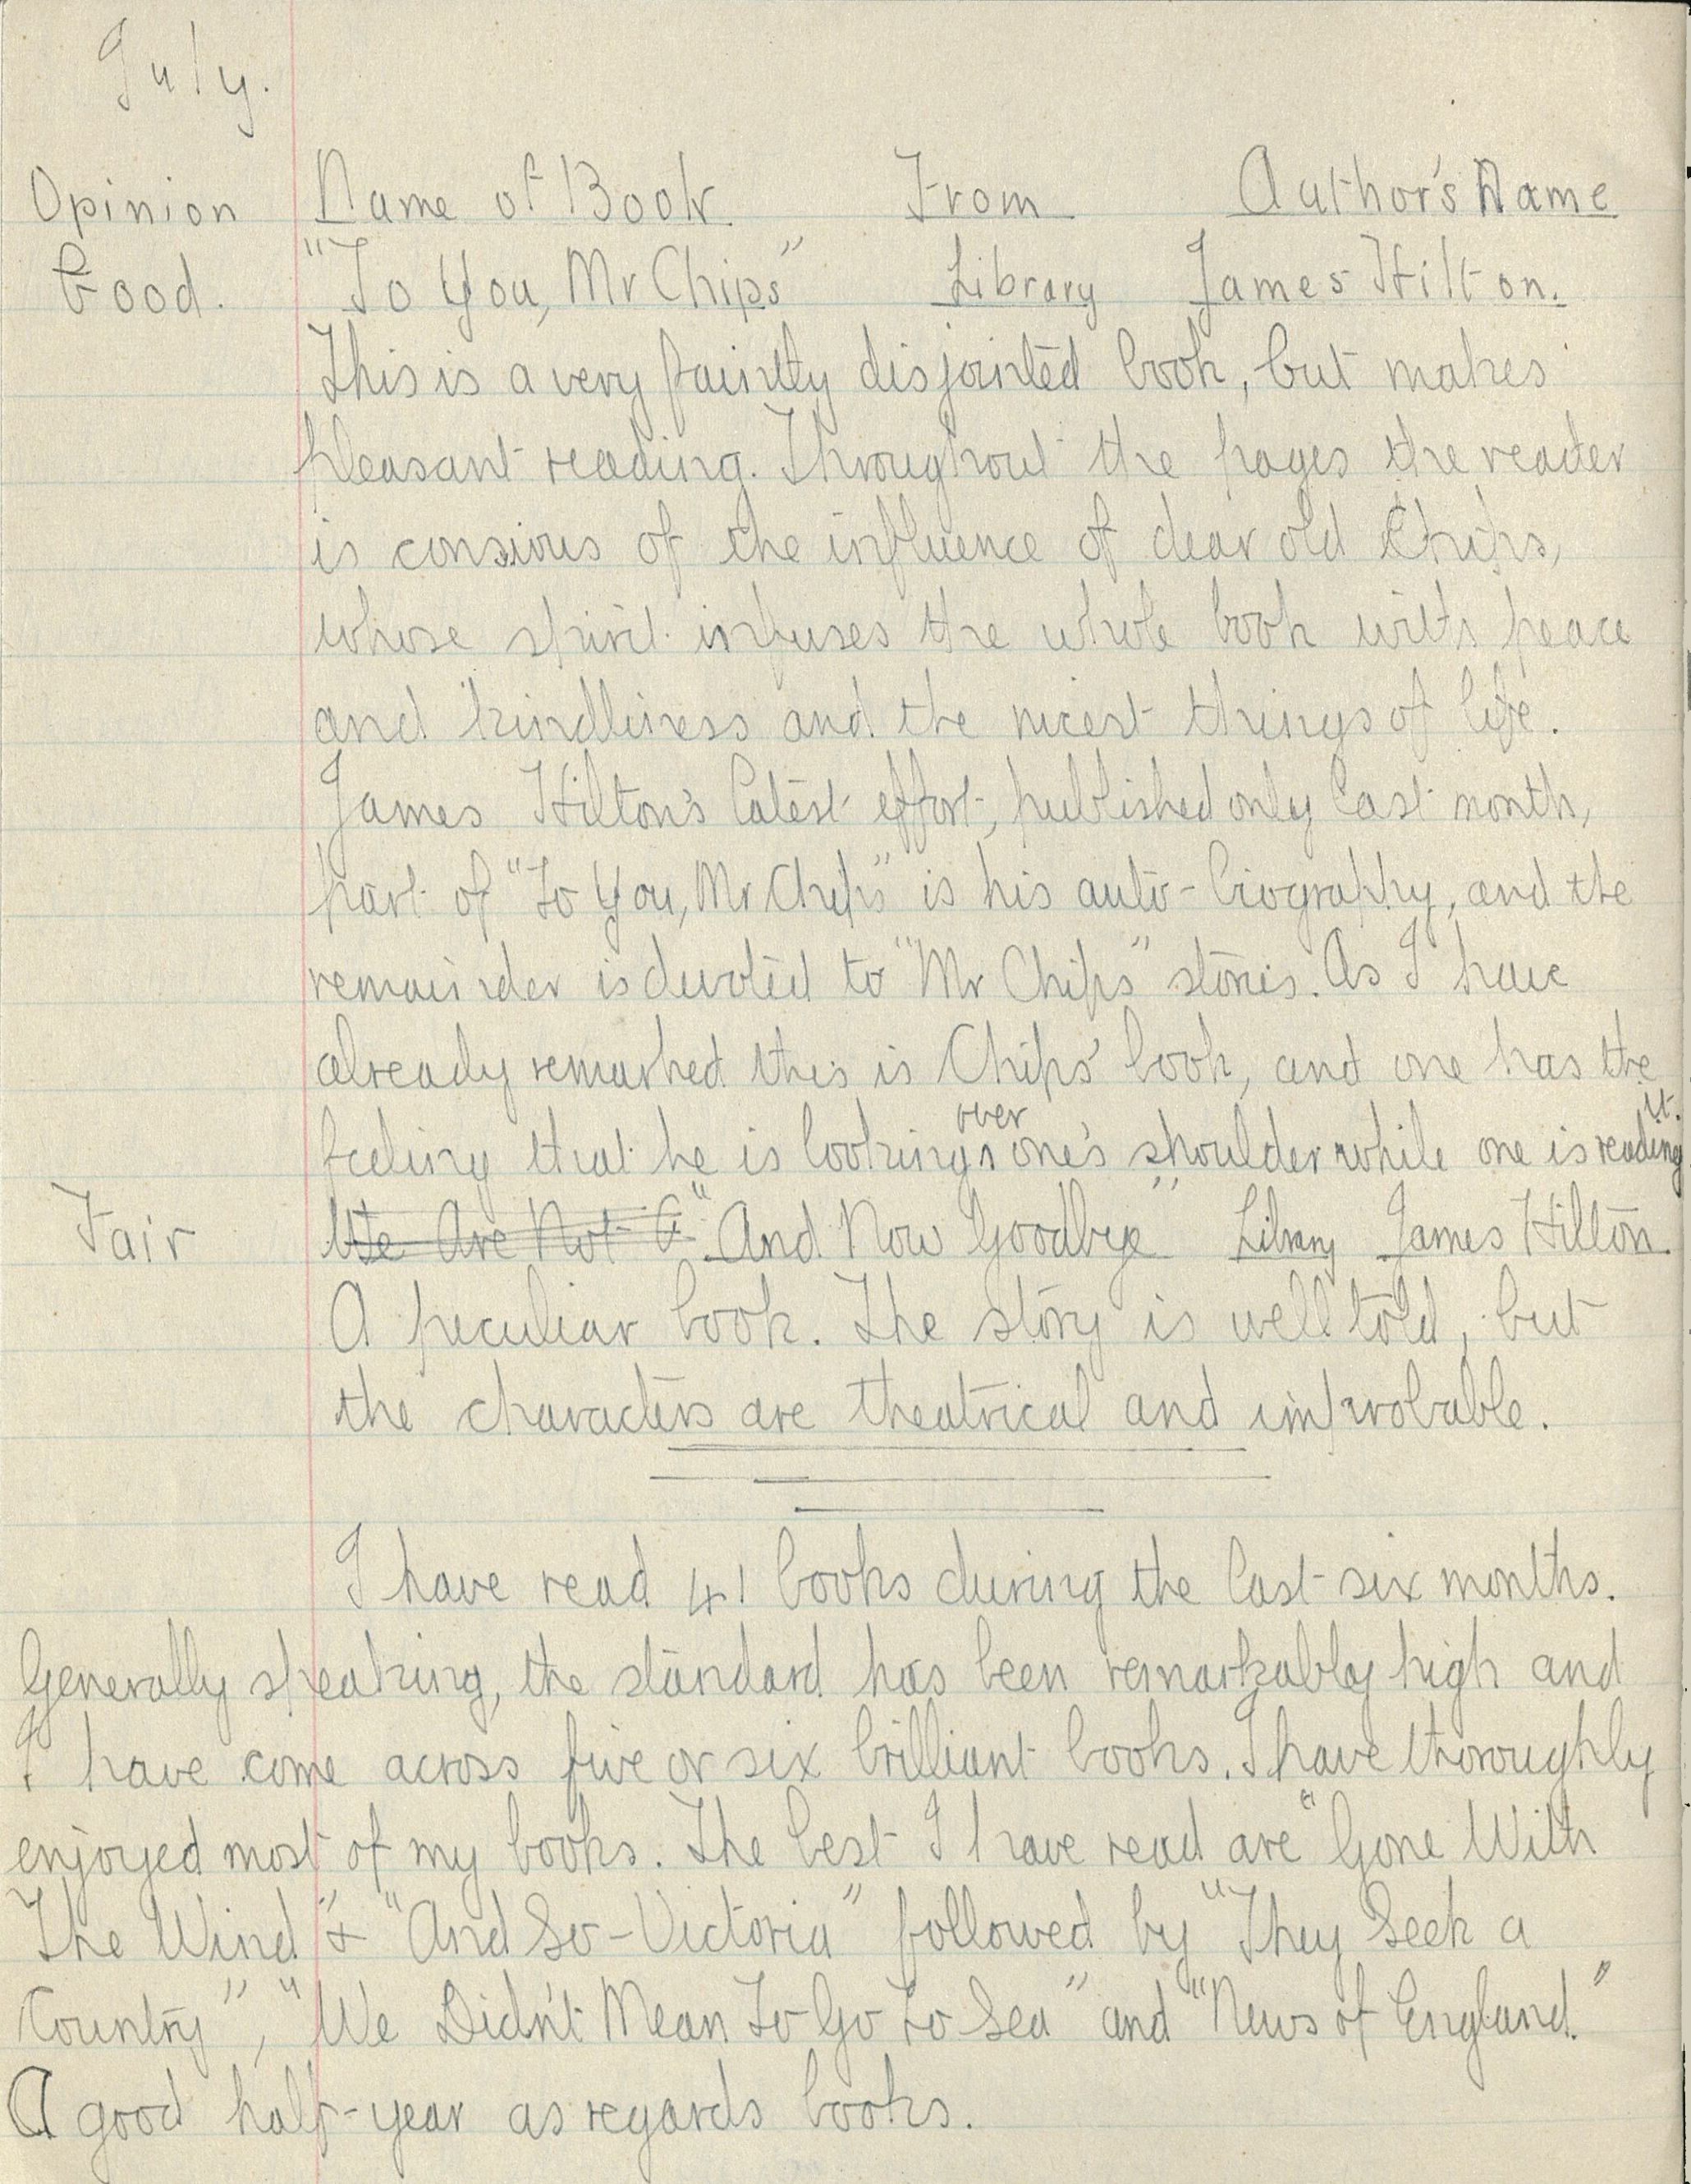 July.
Opinion Name of Book From Author's Name
Good. "To You, Mr Chips" Library James Hilton.
This is a very faintly disjointed book, but makes
pleasant reading. Throughout the pages the reader
is consious of the influence of dear old Chips,
whose spirit infuses the whole book with peace
and kindliness and the nicest things of life.
James Hilton's latest effort, published only last month,
part of "To You, Mr Chips" is his auto-biography, and the
remainder is devoted to "Mr Chips" stories. As I have
already remarked this is Chips' book, and one has the
feeling that he is looking over one's shoulder while one is reading it.
Fair We Are Not A "And Now Goodbye" Library James Hilton.
A peculiar book. The story is well told, but
the characters are theatrical and improbable.
I have read 41 books during the last six months.
Generally speaking, the standard has been remarkably high and
I have come across five or six brilliant books. I have thoroughly
enjoyed most of my books. The best I have read are "Gone With
The Wind" & "And So-Victoria" followed by "They Seek a
Country", "We Didn't Mean To Go To Sea" and "News of England."
A good half-year as regards books.